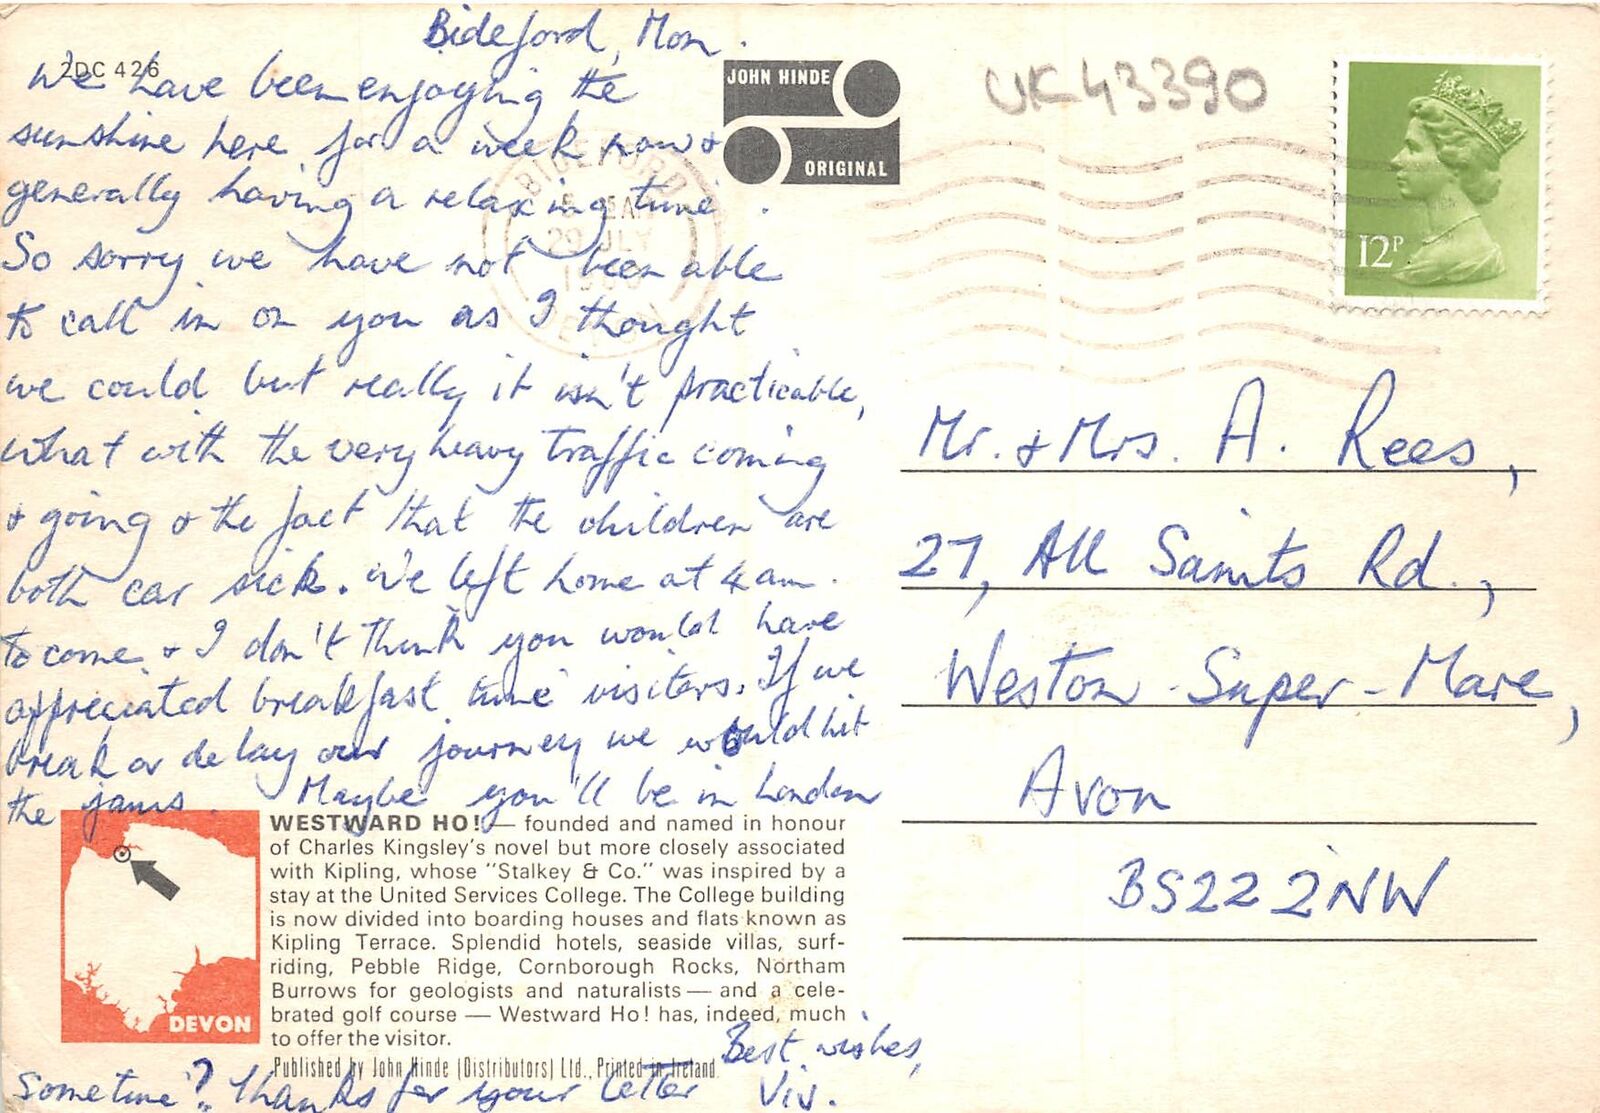 Bideford, Mon.
2DC 426
We have been enjoying the
sunshine here for a week now &
generally having a relaxing time.
So sorry we have not been able
to call in on you as I thought
we could but really it isn't practicable,
what with the very heavy traffic coming
& going & the fact that the children are
both car sick. We left home at 4 am.
to come & I don't think you would have
appreciated breakfast time visitors. If we
break or delay our journey we would hit
the jams. Maybe you'll be in London
sometime? Thanks for your letter
Best wishes,
Viv.
JOHN HINDE
ORIGINAL
UK43390
BIDEFORD
20 JLY
DEVON
12P
Mr. & Mrs. A. Rees,
27, All Saints Rd.,
Weston-Super-Mare,
Avon
BS22 2NW
WESTWARD HO! — founded and named in honour
of Charles Kingsley's novel but more closely associated
with Kipling, whose "Stalkey & Co." was inspired by a
stay at the United Services College. The College building
is now divided into boarding houses and flats known as
Kipling Terrace. Splendid hotels, seaside villas, surf-
riding, Pebble Ridge, Cornborough Rocks, Northam
Burrows for geologists and naturalists — and a cele-
brated golf course — Westward Ho! has, indeed, much
to offer the visitor.
DEVON
Published by John Hinde (Distributors) Ltd., Printed in Ireland.